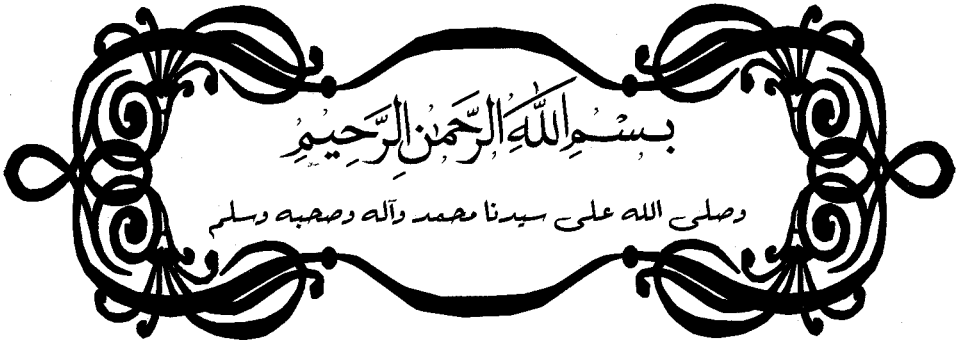 بِسْمِ اللَّهِ الرَّحْمَٰنِ الرَّحِيمِ
وصلى الله على سيدنا محمد وآله وصحبه وسلم